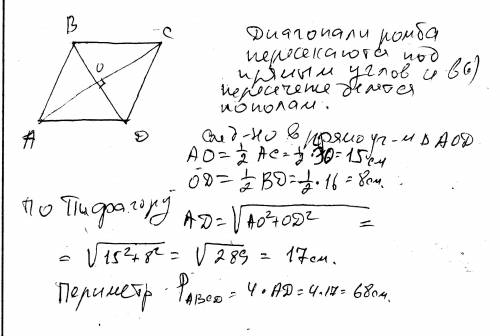 B C
O
A D
Диагонали ромба
пересекаются под
прямым углов и в(6)
пересечение делятся
пополам.
след-но в прямоуг-м ΔAOD
AO = 1/2 AC = 1/2 · 30 = 15 см
OD = 1/2 BD = 1/2 · 16 = 8 см.
По Пифагору AD = √AO²+OD² =
= √15²+8² = √289 = 17 см.
Периметр P ABCD = 4 · AD = 4 · 17 = 68 см.